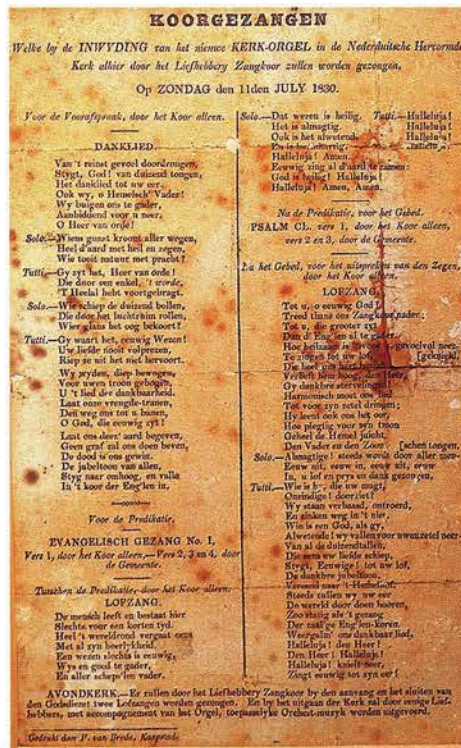 KOORGEZANGEN
Welke by de INWYDING van het nieuwe KERK-ORGEL in de Nederduitsche Hervormde
Kerk alhier door het Liefhebbery Zangkoor zullen worden gezongen,
Op ZONDAG den 11den JULY 1830.
Voor de Voorafspraak, door het Koor alleen.
DANKLIED.
Van 't reinst gevoel doordrongen,
Stygt, God! van duizend tongen,
Het danklied tot uw eer.
Ook wy, o Hemelsch' Vader!
Wy buigen ons te gader,
Aanbiddend voor u neer.
O Heer van orde!
Solo.—Wiens gunst kroont aller wegen,
Heel d'aard met heil en zegen,
Wie tooit natuur met pracht?
Tutti.—Gy zyt het, Heer van orde!
Die door een enkel, 't worde,
'T Heelal hebt voortgebragt.
Solo.—Wie schiep de duizend bollen,
Die door het luchtruim rollen,
Wier glans het oog bekoort?
Tutti.—Gy waart het, eeuwig Wezen!
Uw liefde nooit volprezen,
Riep ze uit het niet hervoort.
Wy wyden, diep bewogen,
Voor uwen troon gebogen,
U 't lied der dankbaarheid.
Laat onze vreugde-tranen,
Den weg ons tot u banen,
O God, die eeuwig zyt!
Laat ons deez' aard begeven,
Geen graf zal ons doen beven,
De dood is ons gewin.
De jubeltoon van allen,
Styg naar omhoog, en valle
In 't koor der Eng'len in.
Voor de Predikatie,
EVANGELISCH GEZANG No. I,
Vers 1, door het Koor alleen,—Vers 2, 3 en 4, door
de Gemeente.
Tusschen de Predikatie, door het Koor alleen.
LOFZANG.
De mensch leeft en bestaat hier
Slechts voor een korten tyd.
Heel 't wereldrond vergaat eens
Met al zyn heerlykheid,
Een wezen slechts is eeuwig,
Wys en goed te gader,
En aller schep'len vader.
Solo.—Dat wezen is heilig. Tutti.—Halleluja!
Het is almagtig. Halleluja!
Ook is het alwetend. Halleluja!
En is Halleluja!
Halleluja! Amen.
Eeuwig zing al d'aard te zamen:
God is heilig! Halleluja!
Halleluja! Amen, Amen.
Na de Predikatie, voor het Gebed.
PSALM CL. vers 1, door het Koor alleen,
vers 2 en 3, door de Gemeente.
Na het Gebed, voor het uitspreken van den Zegen,
door het Koor alleen.
LOFZANG.
Tot u, o eeuwig God!
Treed thans ons Zangkoor nader;
Tot u, die grooter zyt
Dan d' Eng'len al te gader.
Hoe heilzaam is gevoelvol neer-
Te zingen tot uw lof, [geknield,
Die hoort
Verheft hem hoog, den Heer,
Gy dankbre stervelingen!
Harmonisch moet ons lied
Tot voor zyn zetel dringen;
Hy leent ook ons het oor,
Hoe plegtig voor zyn troon
Geheel de Hemel juicht,
Den Vader en den Zoon [schen tongen,
Solo.—Almagtige! steeds wordt door aller men-
Eeuw uit, eeuw in, eeuw uit, eeuw
In, u lof en prys en dank gezongen,
Tutti.—Wie is hy, die uw magt,
Oneindige! doorziet?
Wy staan verbaasd, ontroerd,
En zinken weg in 't niet,
Wie is een God, als gy,
Alwetende! wy vallen voor uwen zetel neer
Van al de duizendtallen,
Die eens uw liefde schiep,
Stygt, Eeuwige! tot uw lof,
De dankbre jubeltoon,
Vereend naar
Steeds zullen wy uw eer
De wereld door doen hooren,
Zoo statig als 't gezang
Der zaal'ge Eng'len-koren.
Weergalm' ons dankbaar lied,
Halleluja! den Heer!
Den Heer! Halleluja!
Halleluja! knielt neer,
Zingt eeuwig tot zyn eer!
AVONDKERK.—Er zullen door het Liefhebbery Zangkoor by den aanvang en het sluiten van
den Godsdienst twee Lofzangen worden gezongen. En by het uitgaan der Kerk zal door eenige Lief-
hebbers, met accompagnement van het Orgel, toepasselyke Orchest-musyk worden uitgevoerd.
Gedrukt door P. van Breda, Kaapstad.